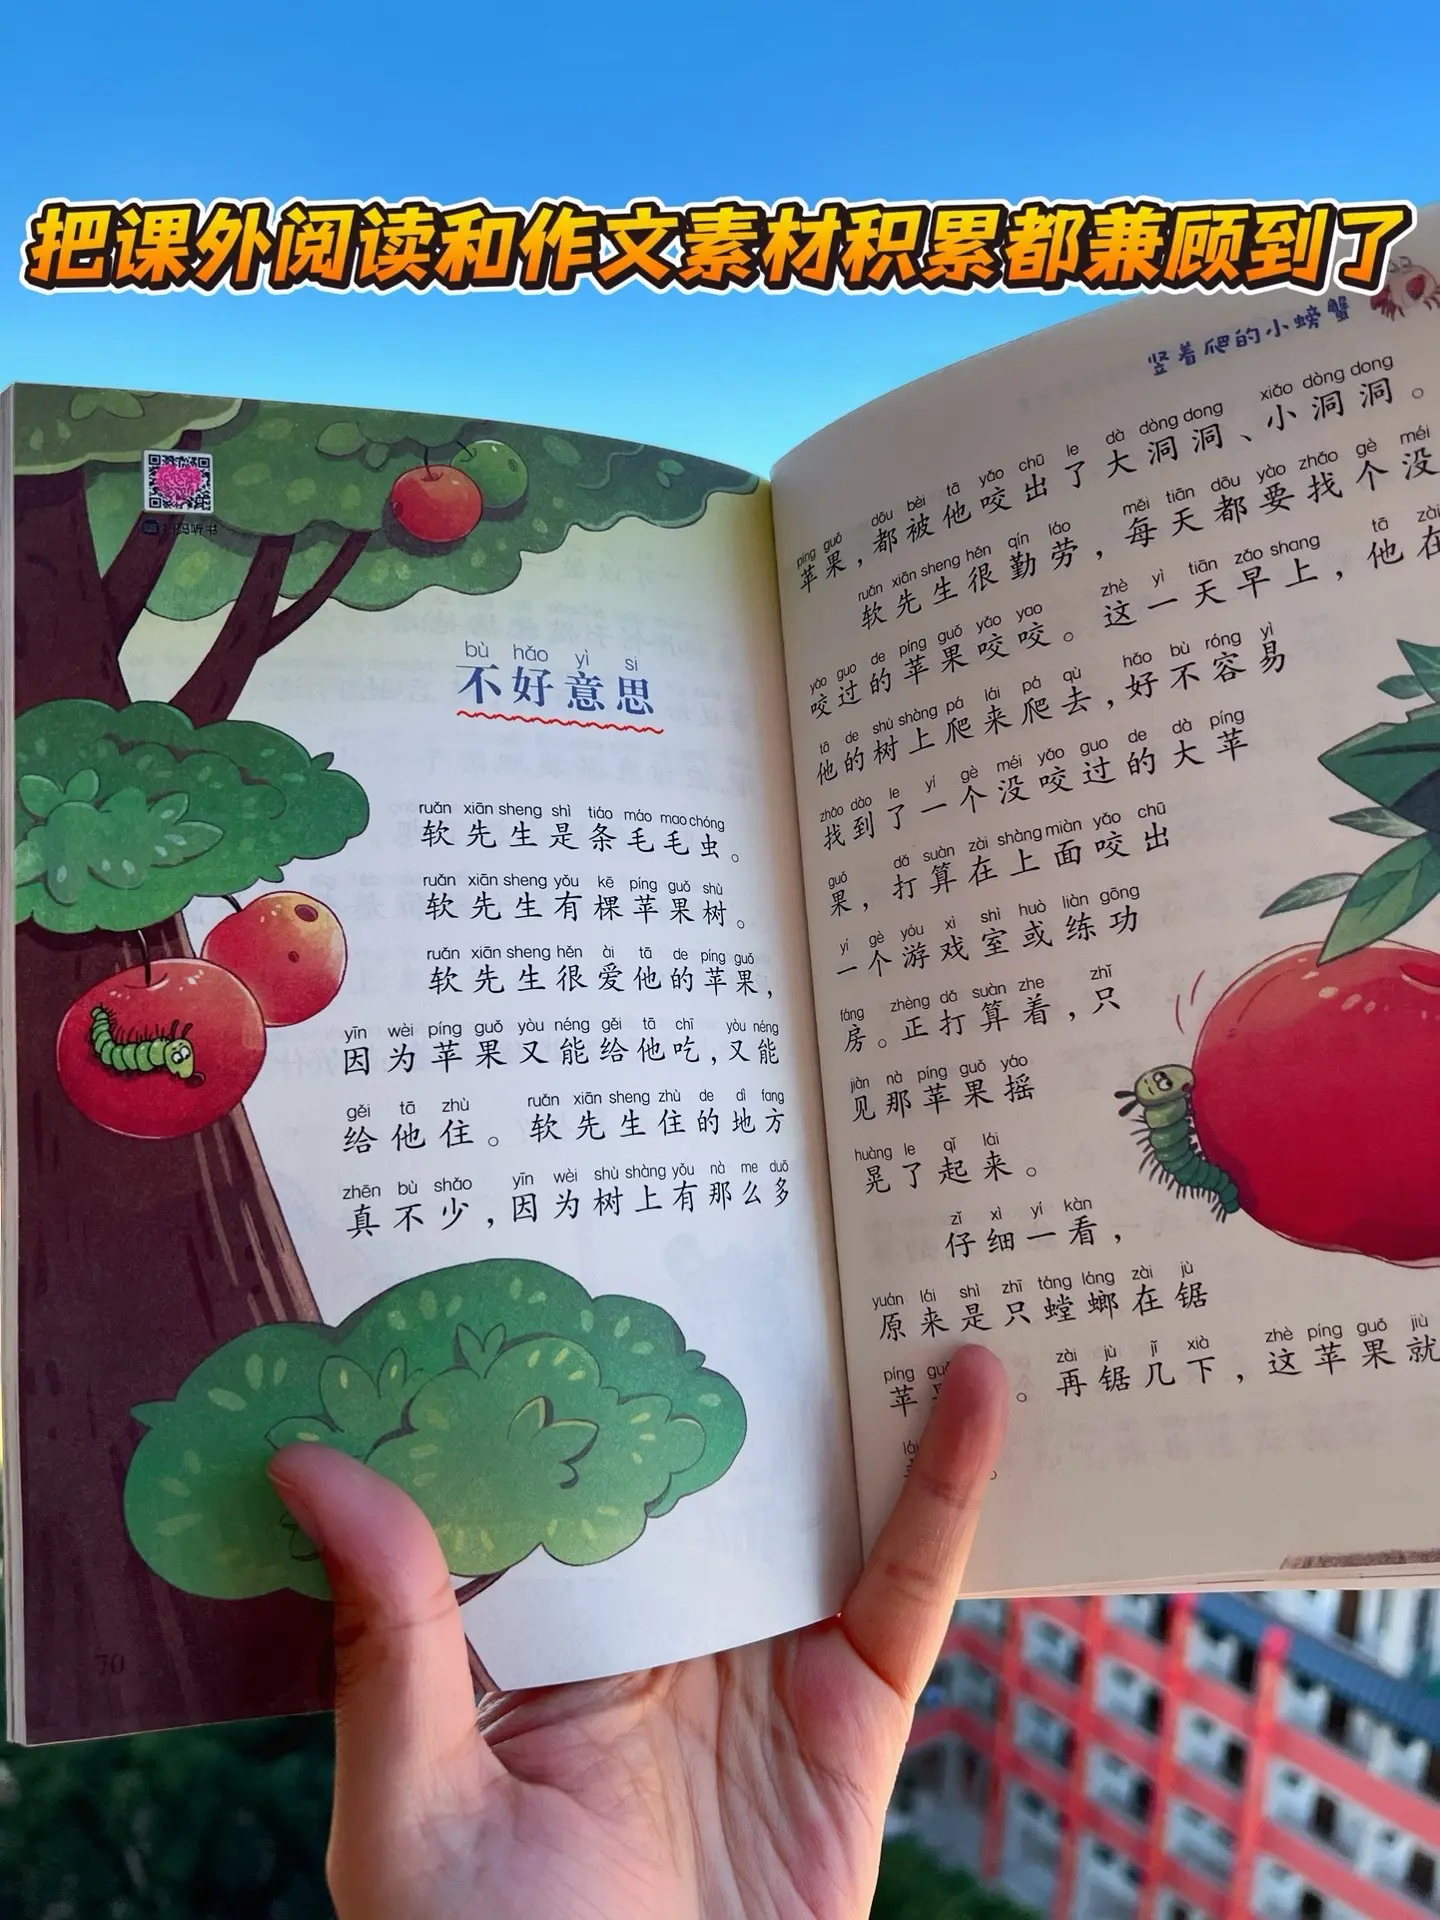 把课外阅读和作文素材积累都兼顾到了
竖着爬的小螃蟹
扫码听书
bù hǎo yì si
不好意思
ruǎn xiān sheng shì tiáo máo mao chóng
软先生是条毛毛虫。
ruǎn xiān sheng yǒu kē píng guǒ shù
软先生有棵苹果树。
ruǎn xiān sheng hěn ài tā de píng guǒ
软先生很爱他的苹果，
yīn wèi píng guǒ yòu néng gěi tā chī yòu néng
因为苹果又能给他吃，又能
gěi tā zhù ruǎn xiān sheng zhù de dì fang
给他住。软先生住的地方
zhēn bù shǎo yīn wèi shù shàng yǒu nà me duō
真不少，因为树上有那么多
70
píng guǒ dōu bèi tā yǎo chū le dà dòng dong xiǎo dòng dong
苹果，都被他咬出了大洞洞、小洞洞。
ruǎn xiān sheng hěn qín láo měi tiān dōu yào zhǎo gè méi
软先生很勤劳，每天都要找个没
yǎo guo de píng guǒ yǎo yao zhè yì tiān zǎo shang tā zài
咬过的苹果咬咬。这一天早上，他在
tā de shù shàng pá lái pá qù hǎo bù róng yì
他的树上爬来爬去，好不容易
zhǎo dào le yí gè méi yǎo guo de dà píng
找到了一个没咬过的大苹
guǒ dǎ suàn zài shàng miàn yǎo chū
果，打算在上面咬出
yí gè yóu xì shì huò liàn gōng
一个游戏室或练功
fáng zhèng dǎ suàn zhe zhǐ
房。正打算着，只
jiàn nà píng guǒ yáo
见那苹果摇
huàng le qǐ lái
晃了起来。
zǐ xì yí kàn
仔细一看，
yuán lái shì zhī táng láng zài jù
原来是只螳螂在锯
píng zài jù jǐ xià zhè píng guǒ jiù
苹 。再锯几下，这苹果就